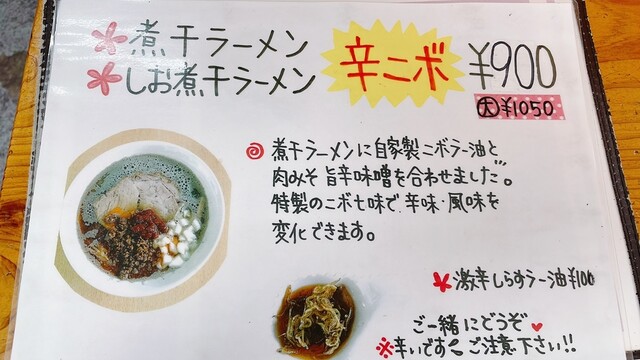 *煮干ラーメン
*しお煮干ラーメン
辛ニボ
¥900
大¥1050
煮干ラーメンに自家製ニボラー油と、
肉みそ旨辛味噌を合わせました。
特製のニボ七味で、辛味・風味を
変化できます。
*激辛しらすラー油¥100
ご一緒にどうぞ♥
※辛いです〜ご注意下さい!!